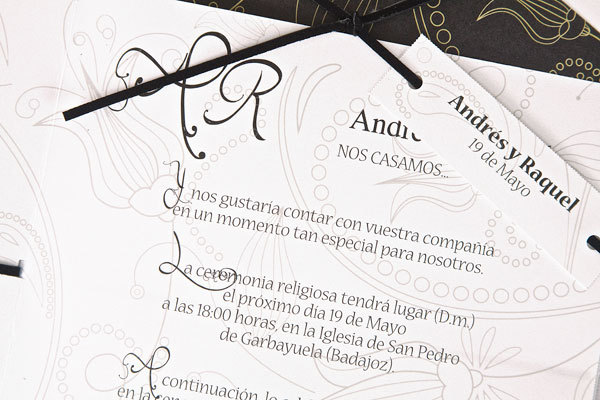 AR
Andrés y Raquel
19 de Mayo
NOS CASAMOS...
Y nos gustaría contar con vuestra compañía
en un momento tan especial para nosotros.
La ceremonia religiosa tendrá lugar (D.m.)
el próximo día 19 de Mayo
a las 18:00 horas, en la Iglesia de San Pedro
de Garbayuela (Badajoz).
A continuación,